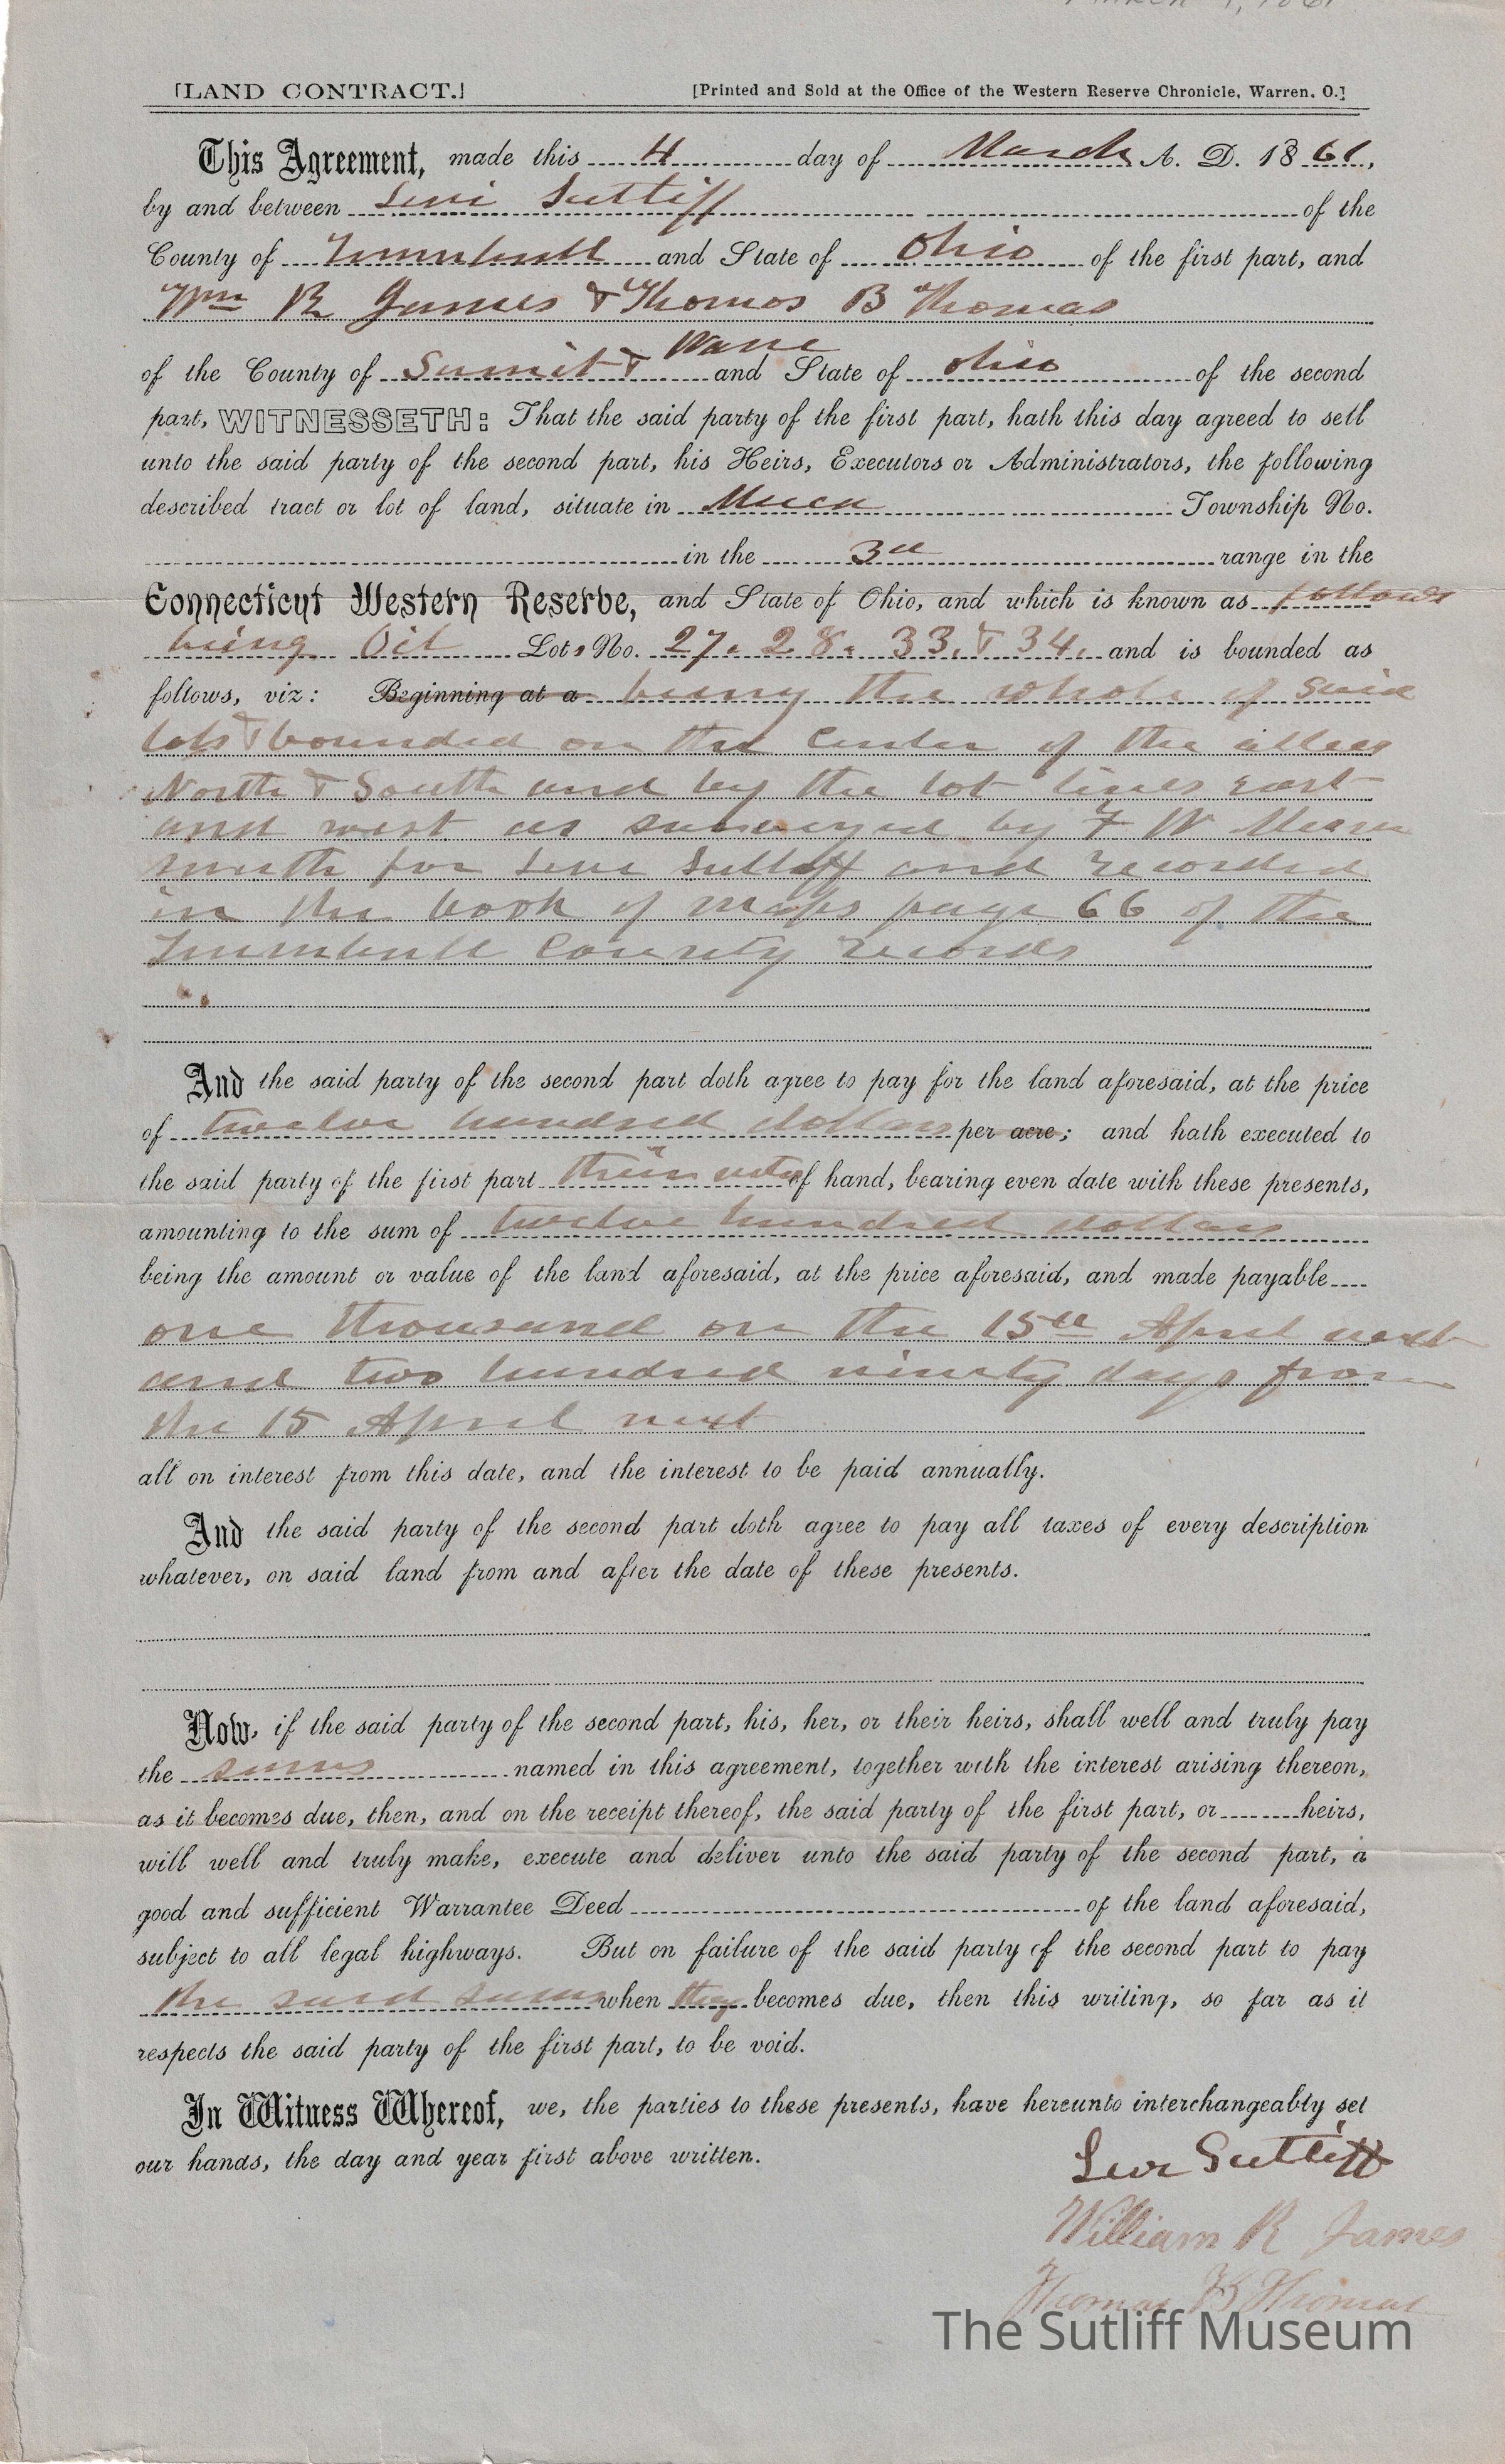 March 4, 1861
[LAND CONTRACT.]
[Printed and Sold at the Office of the Western Reserve Chronicle, Warren, O.]
This Agreement, made this 4 day of March A. D. 1861,
by and between Levi Sutliff of the
County of Trumbull and State of Ohio of the first part, and
Wm R James & Thomas B Thomas
of the County of Summit & and State of Ohio of the second
part, WITNESSETH: That the said party of the first part, hath this day agreed to sell
unto the said party of the second part, his Heirs, Executors or Administrators, the following
described tract or lot of land, situate in Mecca Township No.
in the 3d range in the
Connecticut Western Reserve, and State of Ohio, and which is known as follows
being Oil Lots No. 27. 28. 33. & 34. and is bounded as
follows, viz: Beginning at a being the whole of said
lots & bounded on the center of the allees
North & South and by the lot lines east
and west as surveyed by F W
smith for Levi Sutliff and recorded
in the book of maps page 66 of the
Trumbull County records
And the said party of the second part doth agree to pay for the land aforesaid, at the price
of twelve hundred dollars per acre; and hath executed to
the said party of the first part their note of hand, bearing even date with these presents,
amounting to the sum of twelve hundred dollars
being the amount or value of the land aforesaid, at the price aforesaid, and made payable
one thousand on the 15th April next
and two hundred ninety days from
the 15 April next
all on interest from this date, and the interest to be paid annually.
And the said party of the second part doth agree to pay all taxes of every description
whatever, on said land from and after the date of these presents.
Now, if the said party of the second part, his, her, or their heirs, shall well and truly pay
the sums named in this agreement, together with the interest arising thereon,
as it becomes due, then, and on the receipt thereof, the said party of the first part, or heirs,
will well and truly make, execute and deliver unto the said party of the second part, a
good and sufficient Warrantee Deed of the land aforesaid,
subject to all legal highways. But on failure of the said party of the second part to pay
the said sums when they becomes due, then this writing, so far as it
respects the said party of the first part, to be void.
In Witness Whereof, we, the parties to these presents, have hereunto interchangeably set
our hands, the day and year first above written.
Levi Sutliff
William R James
Thomas B Thomas
The Sutliff Museum